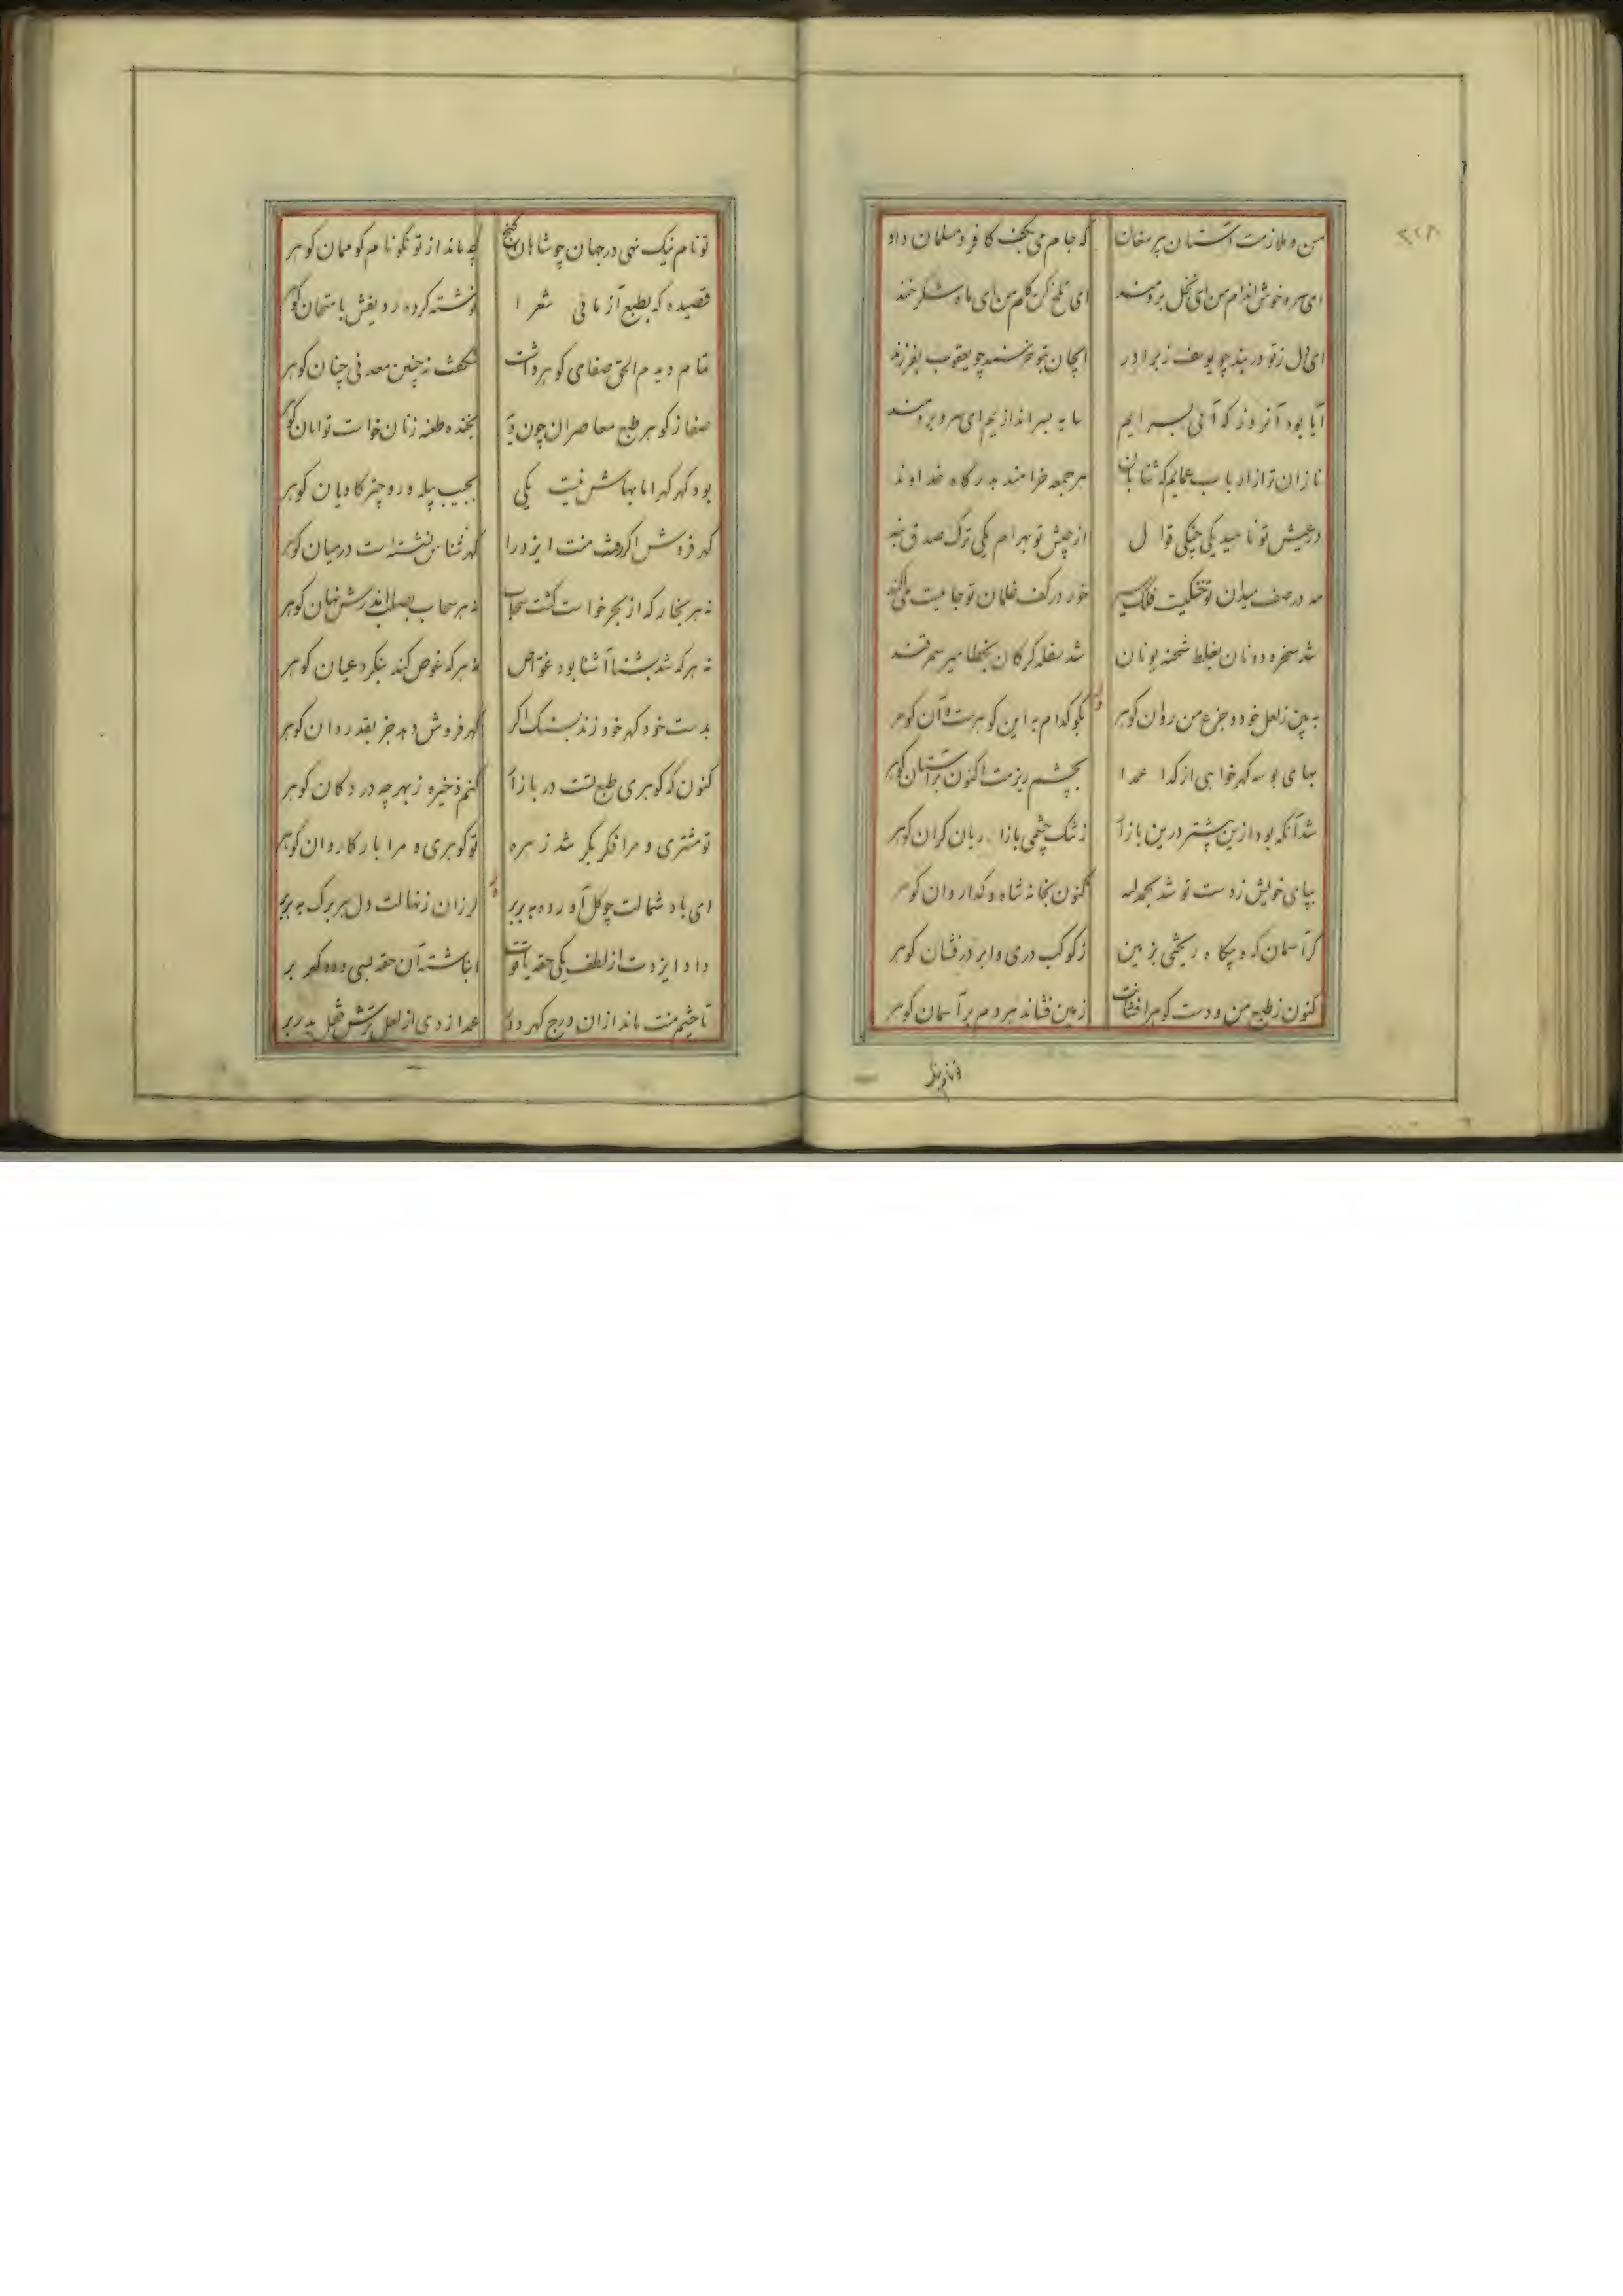 من و ملازمت آستان پیر مغان
که جام می بکف کافر و مسلمان داد
ای سرو خوش اندام من ای نخل برومند
ای تلخ کن کام من ای ماه شکرخند
ای دل ز تو در بند چو یوسف ز برادر
ای جان بتو خرسند چو یعقوب بفرزند
آیا بود آنروز که آئی بسرایم
سایه بسر اندازیم ای سرو برومند
نازان تر از ارباب عمایم که شتابان
هر جمعه خرامند بدرگاه خداوند
در عیش تو ناهید یکی چنکی قوال
از جیش تو بهرام یکی ترک
مه در صف میدان تو فلک سیر
خور در کف غلمان تو جامیست
شد سخره دونان بغلط شحنه یونان
شد سفله کرکان بخطا میر سمرقند
به بین ز لعل خود و جزع من روان کوهر
بکو کدام به این کوهرست و آن کوهر
بهای بوسه کهر خواهی از کدا عمدا
بچشم ریزمت اکنون بر آستان کوهر
شد آنکه بود ازین پیشتر درین بازار
ز تنک چشمی بازاریان کران کوهر
بپای خویش ز دست تو شد بحمدلله
کنون بخانه شاه و کدا روان کوهر
کر آسمان که و بیکاه ریختی بزمین
ز کوکب دری و ابر درفشان کوهر
کنون ز طبع من و دست کوهر افشانت
زمین فشاند هر دم بر آسمان کوهر
تو نام نیک نهی در جهان چو شاهان کنج
چه ماند از تو نکو نام کو ممان کوهر
قصیده که بطبع آزمائی شعرا
نوشته کرده ردیفش بامتحان کوهر
تمام دیدم الحق صفای کوهر داشت
شکفت نه چنین معدنی چنان کوهر
صفا ز کوهر طبع معاصران چون
بخنده طعنه زنان خواست توامان کوهر
بود کهر کهر اما بهاش نیست یکی
بجیب پیله ور و چتر کاویان کوهر
کهر فروش منت ایزد را
کهر شناس نشسته است در میان کوهر
نه هر بخار که از بحر خواست کشت سحاب
نه هر سحاب نهان کوهر
نه هر که شد بشنا آشنا بود غواص
نه هر که غوص کند بنکرد عیان کوهر
بدست خود کهر خود زند بسنک اکر
کهر فروش دهد جز بقدردان کوهر
کنون که کوهری طبع تست در بازار
کنم ذخیره ز بهر چه در دکان کوهر
تو مشتری و مرا فکر بکر شد زهره
تو کوهری و مرا بار کاروان کوهر
ای باد شمالت چو کل آورده به بر بر
لرزان ز نهالت دل هر برک به بر بر
داد ایزدت از لطف یکی حقه یاقوت
انباشته آن حقه بسی دهه کهر بر
تا چشم منت ماند از آن درج کهر دور
عمدا زدی از لعل ترش قفل بدر بر